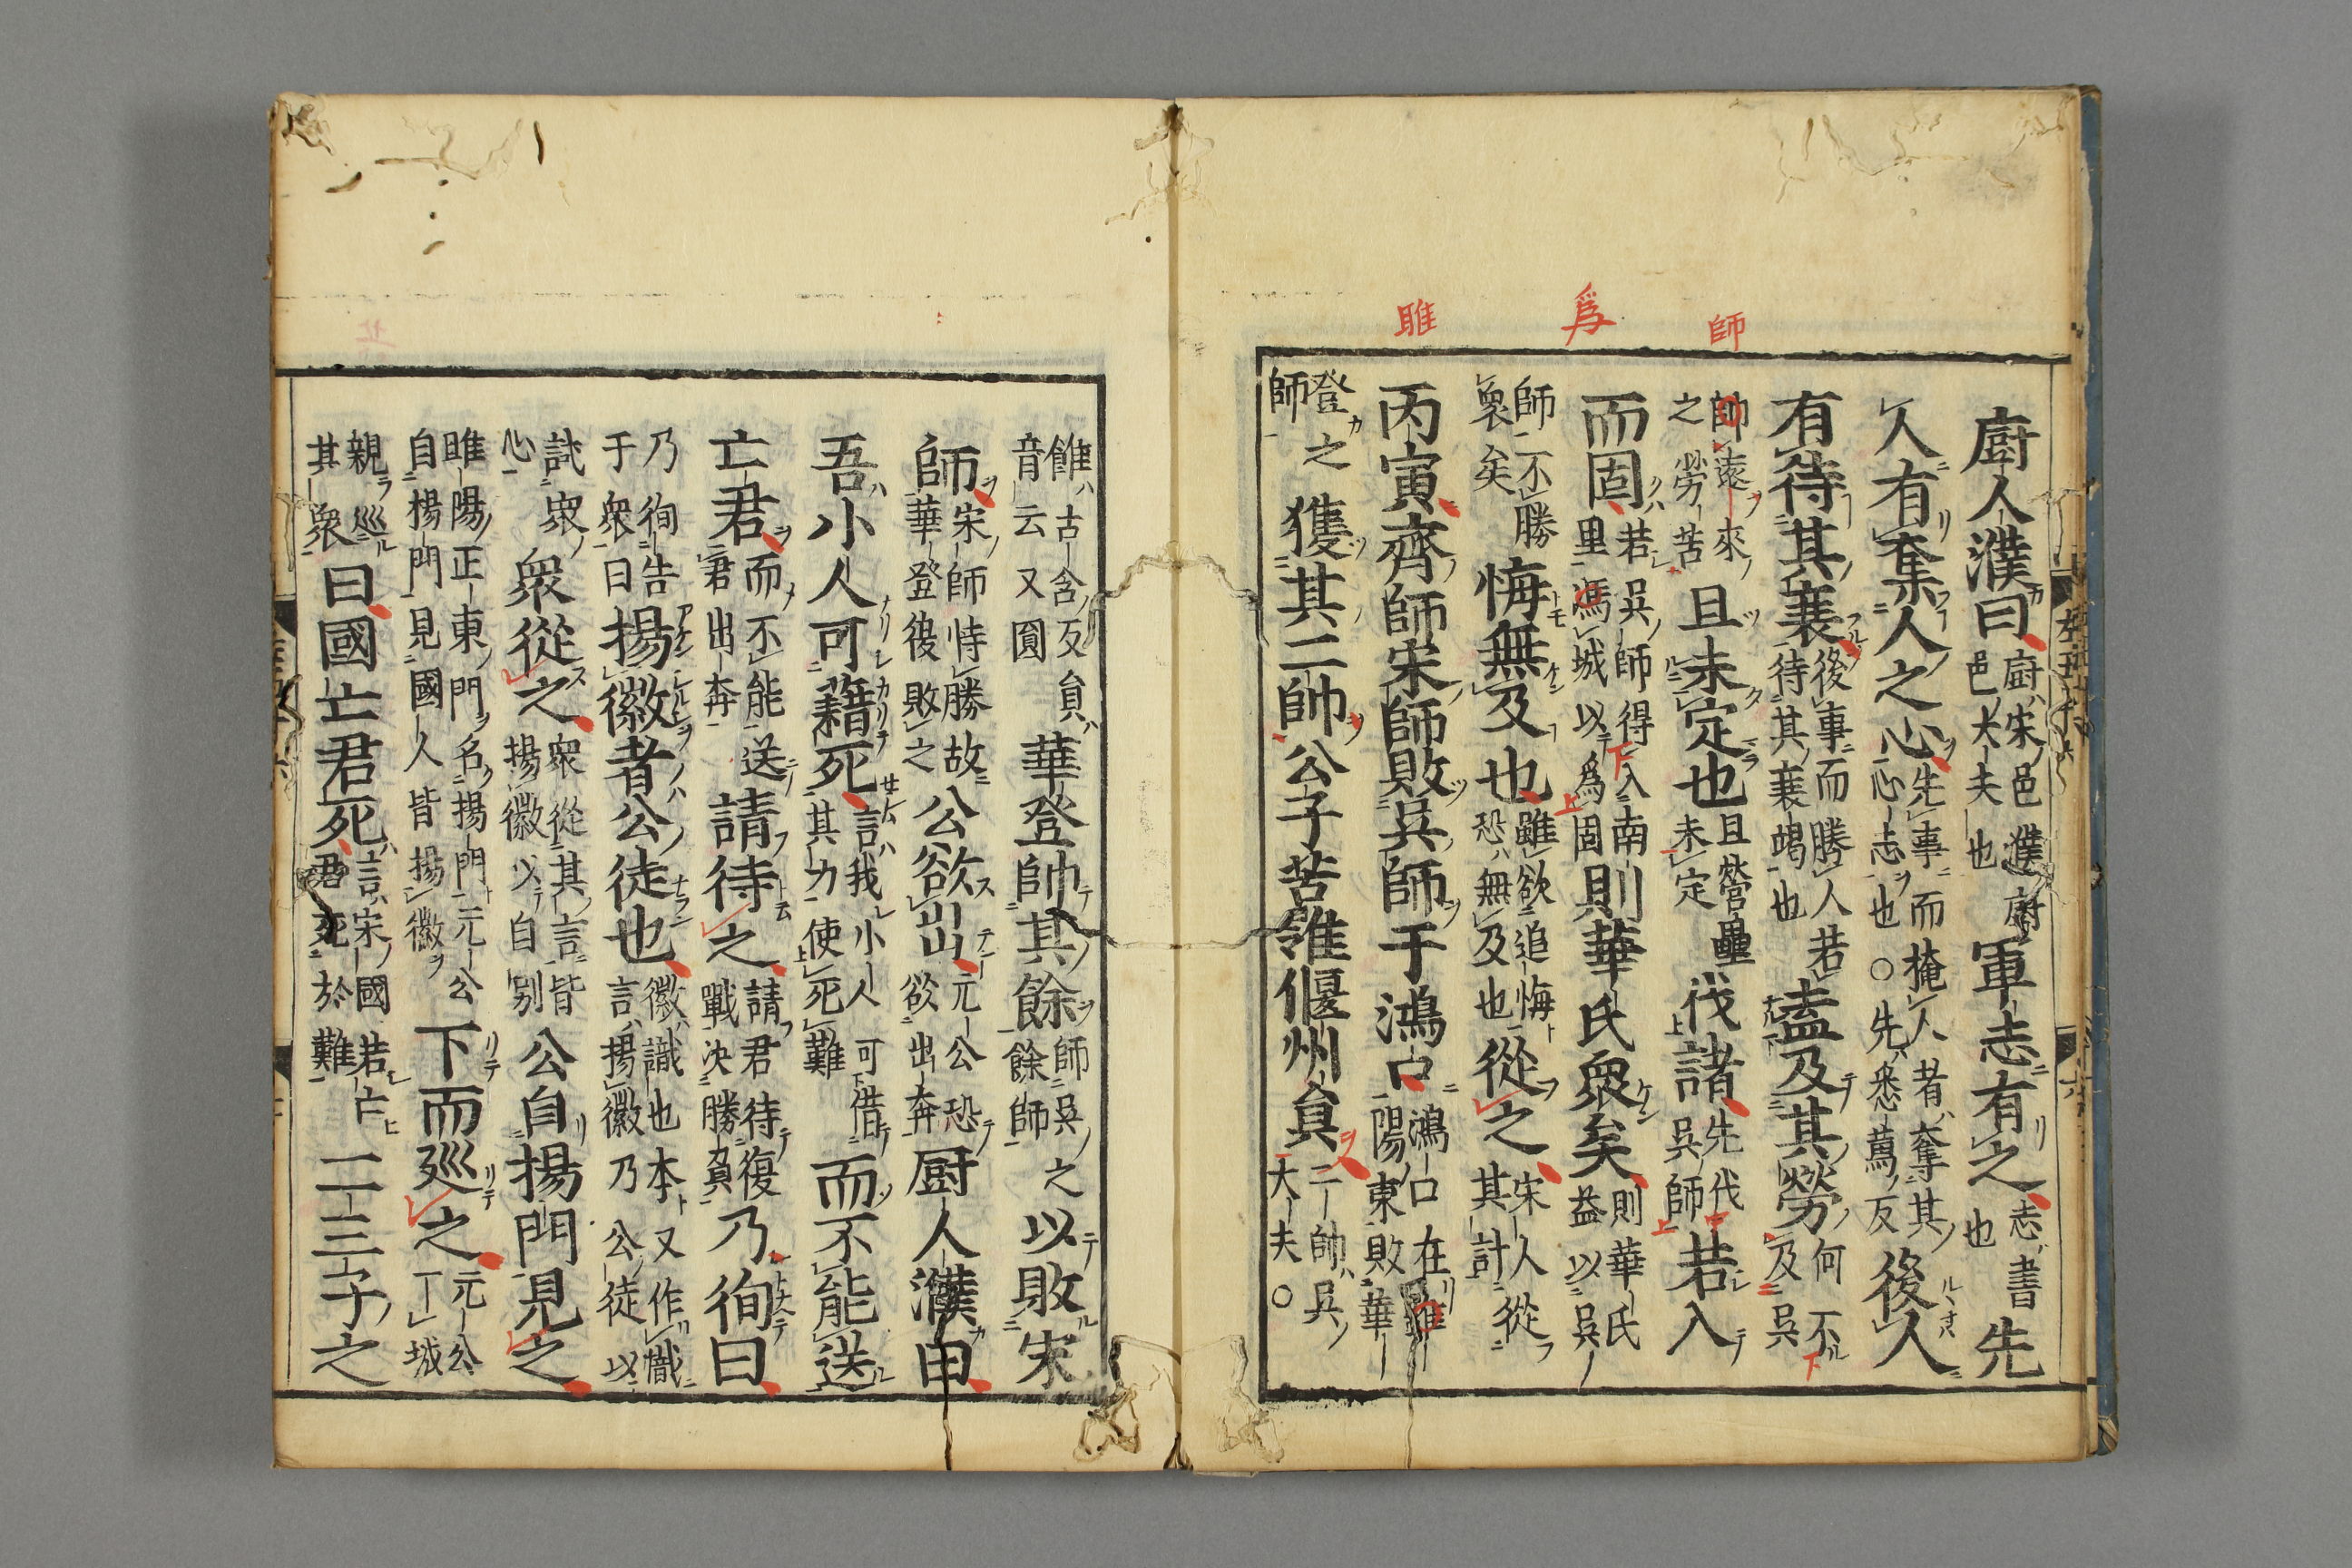 師
爲
睢
廚人濮曰廚宋邑濮廚邑大夫也軍志有之志書也先
人有奪人之心先事而掩人者奪其心志也○先悉薦反後人
有待其衰後事而勝人若待其衰竭也盍及其勞何不及吳
帥遠來之勞苦且未定也且營壘未定伐諸先伐吳師若入
而固若吳師得入南里馮城以爲固則華氏衆矣則華氏益以吳
師不勝衆矣悔無及也雖欲追悔恐無及也從之宋人從其計
丙寅齊師宋師敗吳師于鴻口鴻口在雖陽東敗華
登之師獲其二帥公子苦雂偃州員二帥吳大夫○
雂古含反員音云又圓華登帥其餘師吳之餘師以敗宋
師宋師恃勝故華登後敗之公欲出元公恐欲出奔厨人濮曰
吾小人可藉死言我小人可借其力使死難而不能送
亡君而不能送君出奔請待之請君待復戰决勝負乃徇曰
乃徇告于衆曰揚徽者公徒也徽識也本又作幟言揚徽乃公徒以
試衆心衆從之衆從其言皆揚徽以自別公自揚門見之
睢陽正東門名揚門元公自揚門見國人皆揚徽下而巡之元公下城
親巡其衆曰國亡君死言宋國若亡君死於難二三子之